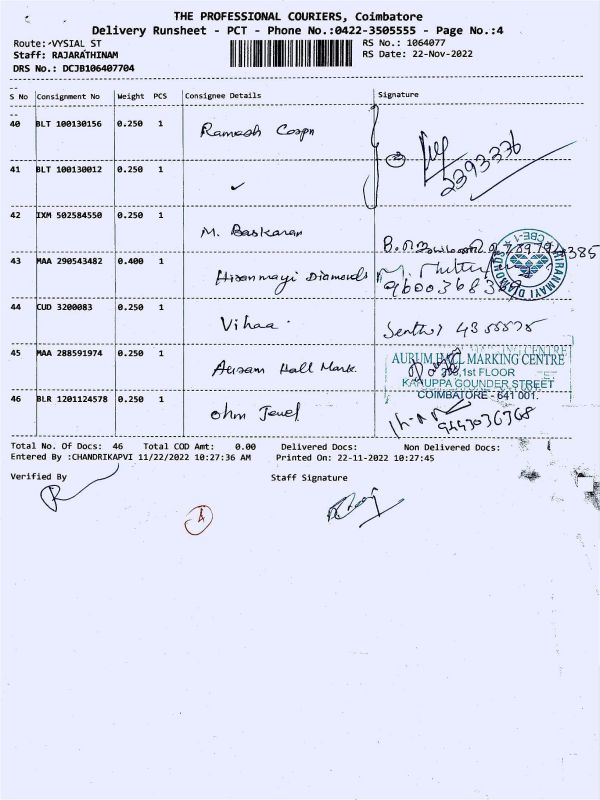 THE PROFESSIONAL COURIERS, Coimbatore
Delivery Runsheet - PCT - Phone No.:0422-3505555 - Page No.:4
Route: VYSIAL ST RS No.: 1064077
Staff: RAJARATHINAM RS Date: 22-Nov-2022
DRS No.: DCJB106407704
S No Consignment No Weight PCS Consignee Details Signature
40 BLT 100130156 0.250 1 Ramesh Corpn
2393336
41 BLT 100130012 0.250 1
42 IXM 502584550 0.250 1 M. Baskaran
43 MAA 290543482 0.400 1 Hiranmayi Diamonds
HIRANMAYI DIAMONDS CBE-1
44 CUD 3200083 0.250 1 Vihaa.
45 MAA 288591974 0.250 1 Auram Hall Mark.
AURUM HALL MARKING CENTRE
1st FLOOR
KARUPPA GOUNDER STREET
COIMBATORE - 641 001.
46 BLR 1201124578 0.250 1 Ohm Jewel
9443036368
Total No. Of Docs: 46 Total COD Amt: 0.00 Delivered Docs: Non Delivered Docs:
Entered By :CHANDRIKAPVI 11/22/2022 10:27:36 AM Printed On: 22-11-2022 10:27:45
Verified By Staff Signature